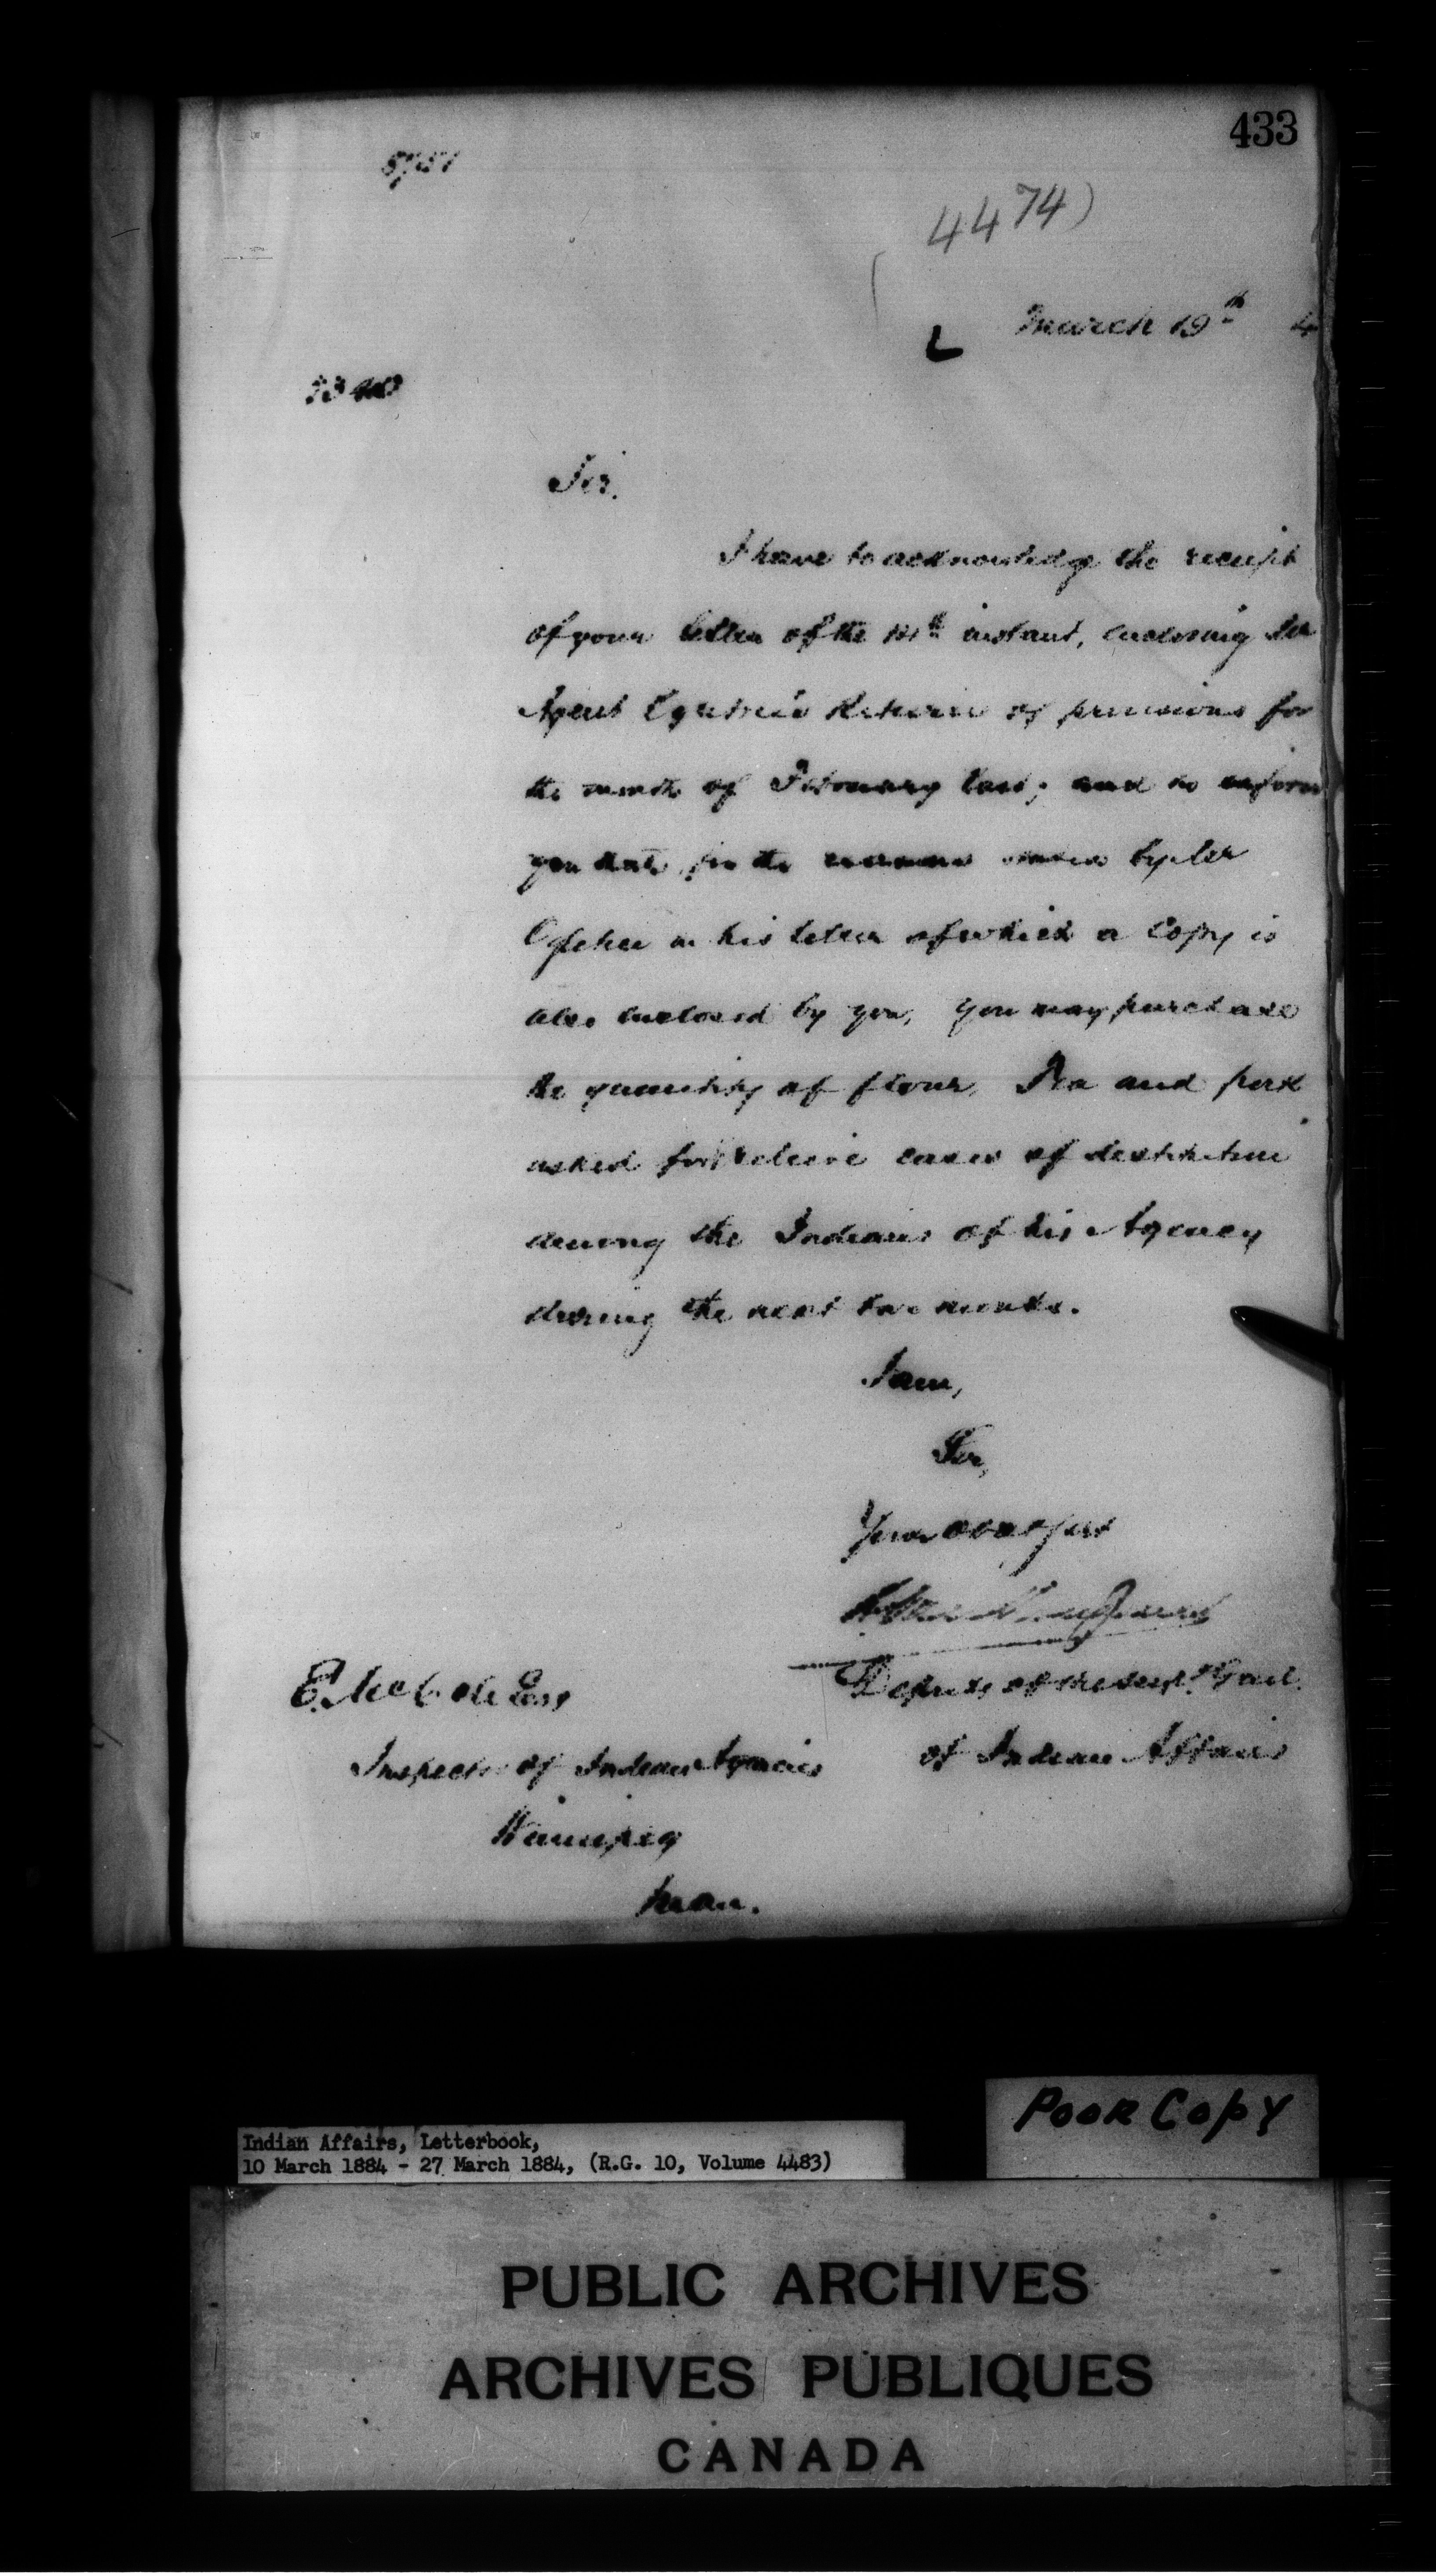 433
(4474)
March 19th 4
Sir,
I have to acknowledge the receipt
of your letter of the instant, enclosing
Agent Returns of provisions for
the month of February last; and to inform
you that, for the reasons by
Officer in his letter of which a Copy is
also enclosed by you, you may purchase
the quantity of flour, Tea and pork
asked for to relieve cases of destitution
among the Indians of his Agency
during the next two months.
I am,
Sir,
Your obt. servt
Deputy of the Supt. Genl.
E. McColl Esq
Inspector of Indian Agencies
of Indian Affairs
Winnipeg
Man.
Poor Copy
Indian Affairs, Letterbook,
10 March 1884 - 27 March 1884, (R.G. 10, Volume 4483)
PUBLIC ARCHIVES
ARCHIVES PUBLIQUES
CANADA